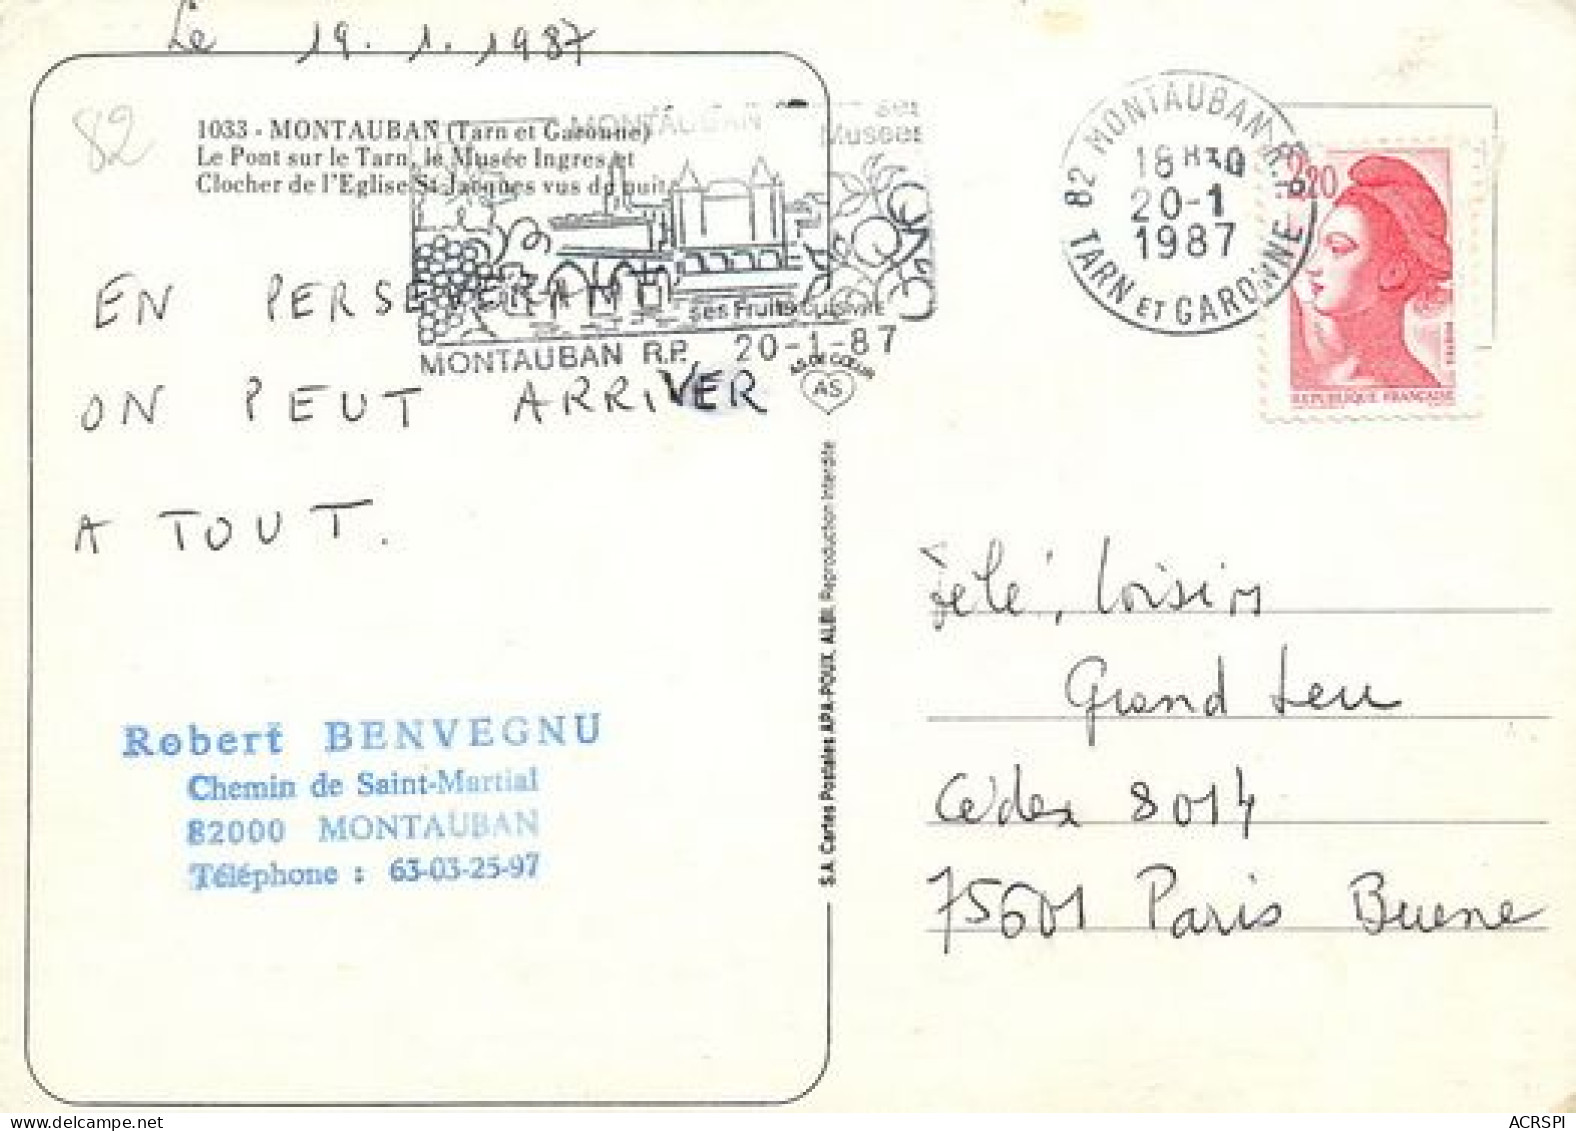 Le 19.1.1987
82
1033 - MONTAUBAN (Tarn et Garonne)
Le Pont sur le Tarn, le Musée Ingres et
Clocher de l'Eglise St Jacques vus de nuit
MONTAUBAN
ses
Musées
ses Fruits
MONTAUBAN R.P. 20-1-87
82 MONTAUBAN R.P.
18H30
20-1
1987
TARN ET GARONNE
2,20
REPUBLIQUE FRANÇAISE
EN PERSEVERANT
ON PEUT ARRIVER
A TOUT.
AS DE CŒUR
AS
S.A. Cartes Postales APA-POUX, ALBI. Reproduction interdite
Télé, Loisirs
Grand Jeu
Cédex 8014
75601 Paris Brune
Robert BENVEGNU
Chemin de Saint-Martial
82000 MONTAUBAN
Téléphone : 63-03-25-97
ACRSPI